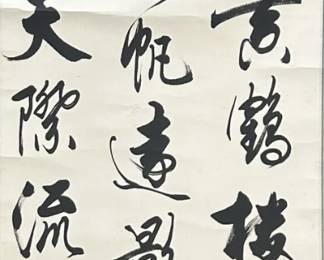 黃鶴樓
帆遠影
天際流